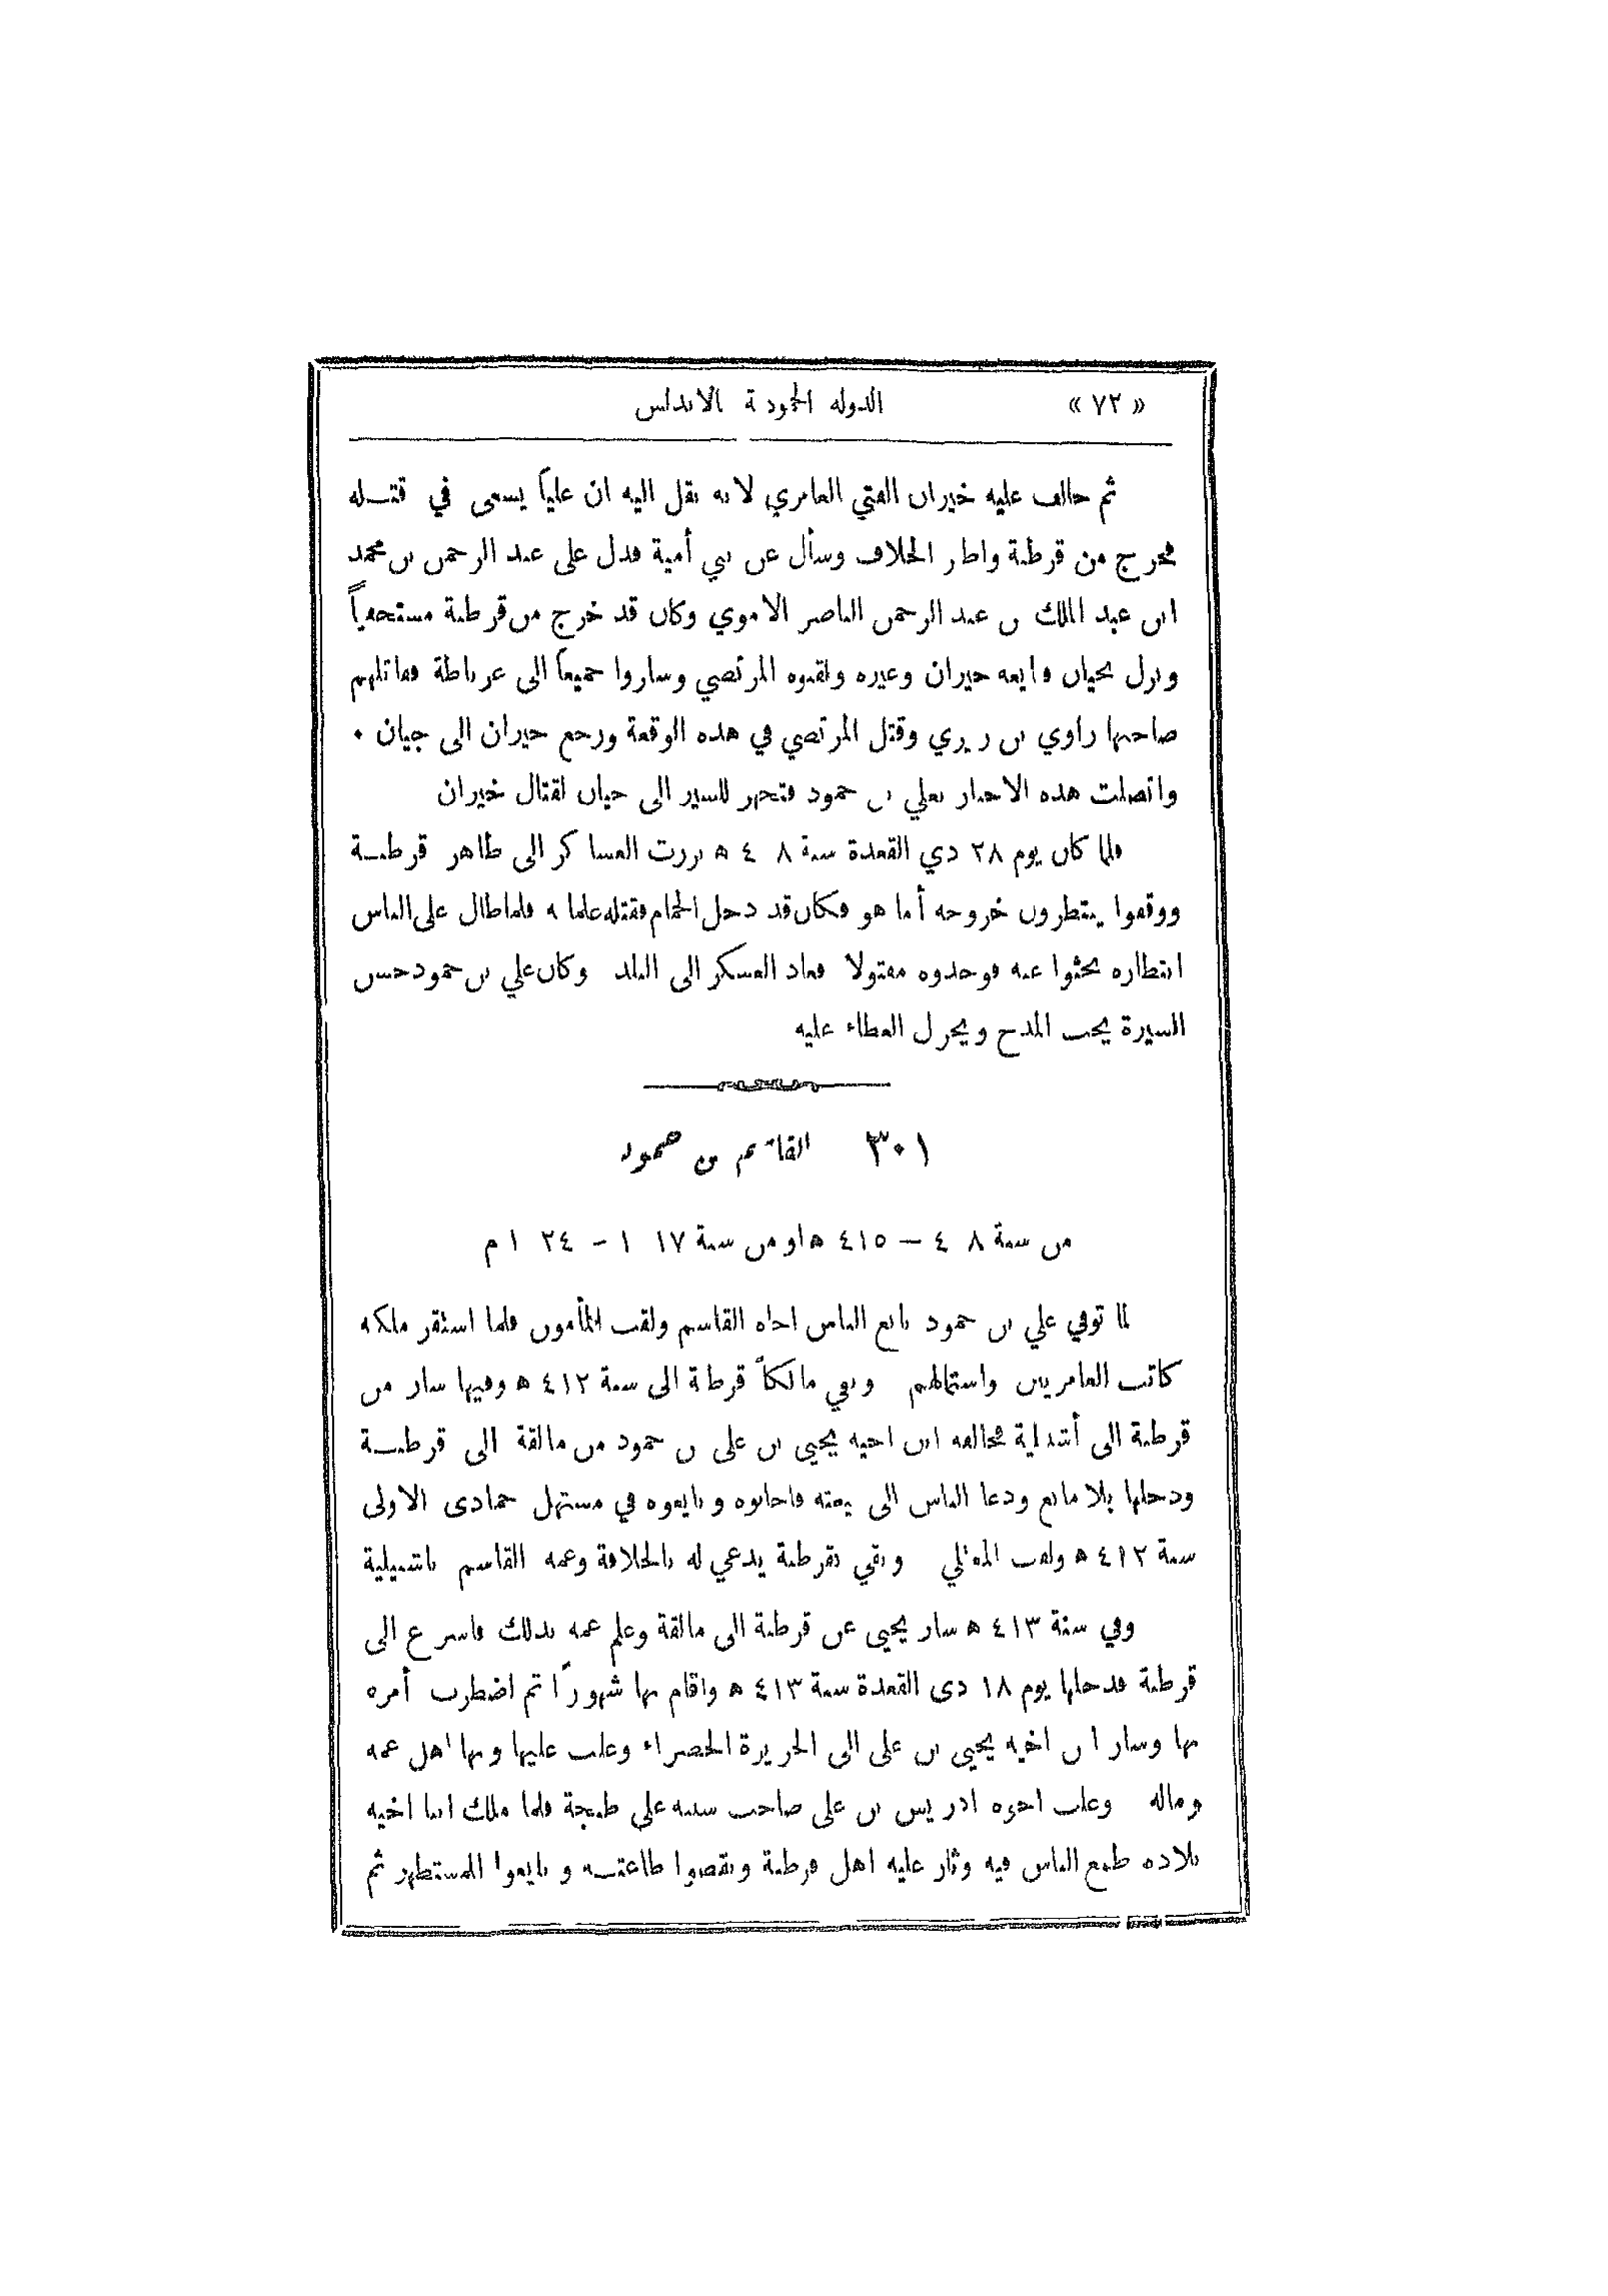 « ٧٢ » الدولة الحمودية بالاندلس
ثم خالف عليه خيران الفتى العامري لانه نقل اليه ان علياً يسعى في قتله
فخرج من قرطبة واظهر الخلاف وسأل عن بني أمية فدل على عبد الرحمن بن محمد
ابن عبد الملك بن عبد الرحمن الناصر الاموي وكان قد خرج من قرطبة مستخفياً
ونزل بجيان فبايعه خيران وغيره ولقبوه المرتضي وساروا جميعاً الى غرناطة فقاتلهم
صاحبها زاوي بن زيري وقتل المرتضي في هذه الوقعة ورجع خيران الى جيان ٠
واتصلت هذه الاخبار بعلي بن حمود فتجهز للسير الى جيان لقتال خيران
فلما كان يوم ٢٨ ذي القعدة سنة ٤٠٨ ه برزت العساكر الى ظاهر قرطبة
ووقفوا ينتظرون خروجه أما هو فكان قد دخل الحمام فقتله غلمانه فلما طال على الناس
انتظاره بحثوا عنه فوجدوه مقتولا فعاد العسكر الى البلد وكان علي بن حمود حسن
السيرة يحب المدح ويجزل العطاء عليه
٣٠١ القاسم بن حمود
من سنة ٤٠٨ — ٤١٥ ه او من سنة ١٠١٧ - ١٠٢٤ م
لما توفي علي بن حمود بايع الناس اخاه القاسم ولقب المأمون فلما استقر ملكه
كاتب العامريين واستمالهم وبقي مالكاً قرطبة الى سنة ٤١٢ ه وفيها سار من
قرطبة الى أشبيلية فخالفه ابن اخيه يحيى بن على بن حمود من مالقة الى قرطبة
ودخلها بلا مانع ودعا الناس الى بيعته فاجابوه وبايعوه في مستهل جمادى الاولى
سنة ٤١٢ ه ولقب المعتلي وبقي بقرطبة يدعي له بالخلافة وعمه القاسم باشبيلية
وفي سنة ٤١٣ ه سار يحيى عن قرطبة الى مالقة وعلم عمه بذلك فاسرع الى
قرطبة فدخلها يوم ١٨ ذى القعدة سنة ٤١٣ ه واقام بها شهوراً ثم اضطرب أمره
بها وسار ابن اخيه يحيى بن على الى الجزيرة الخضراء وغلب عليها وبها اهل عمه
وماله وغلب اخوه ادريس بن على صاحب سبتة على طنجة فلما ملك ابنا اخيه
بلاده طمع الناس فيه وثار عليه اهل قرطبة ونقضوا طاعته وبايعوا المستظهر ثم